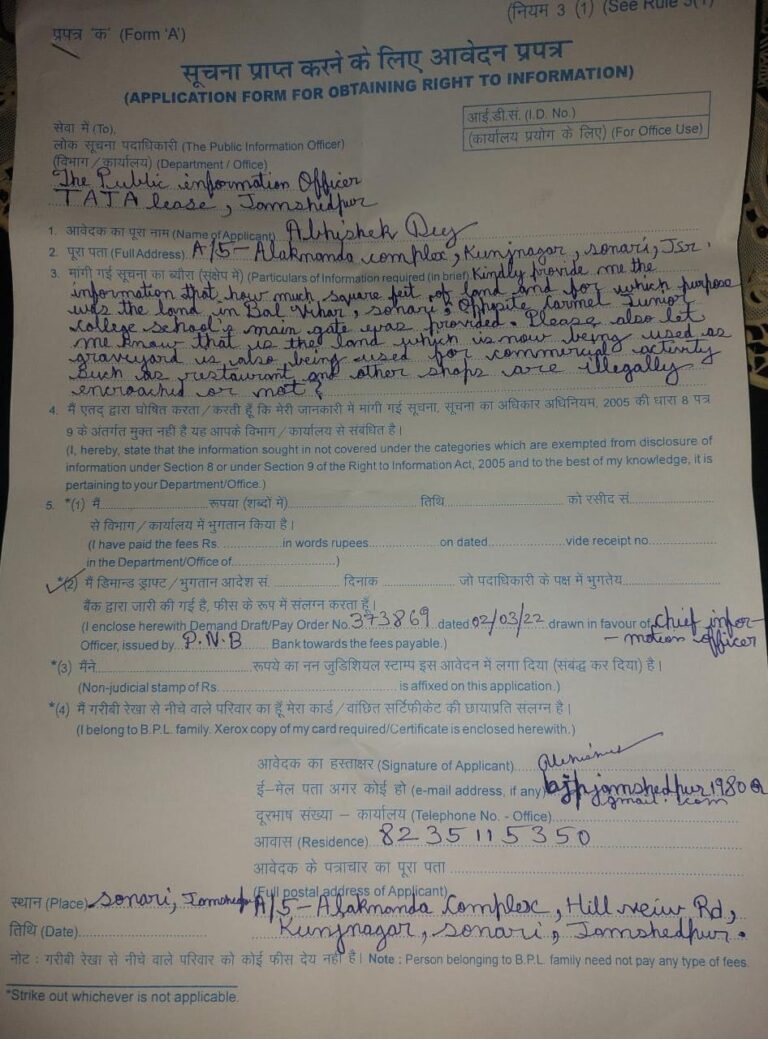 (नियम 3 (1) (See Rule 3(1)
प्रपत्र 'क' (Form 'A')
सूचना प्राप्त करने के लिए आवेदन प्रपत्र
(APPLICATION FORM FOR OBTAINING RIGHT TO INFORMATION)
आई.डी.सं. (I.D. No.)
(कार्यालय प्रयोग के लिए) (For Office Use)
सेवा में (To),
लोक सूचना पदाधिकारी (The Public Information Officer)
(विभाग / कार्यालय) (Department / Office)
The Public information Officer
TATA lease, Jamshedpur
1. आवेदक का पूरा नाम (Name of Applicant) Abhishek Dey
2. पूरा पता (Full Address) A/5-Alaknanda complex, Kunjnagar, sonari, Jsr.
3. मांगी गई सूचना का ब्यौरा (संक्षेप में) (Particulars of Information required (in brief) Kindly provide me the
information that how much square feet of land and for which purpose
was the land in Bal Vihar, sonari, Opposite Carmel Junior
College school's main gate was provided. Please also let
me know that is the land which is now being used as
graveyard is also being used for commercial activity
such as restaurant and other shops are illegally
encroached or not?
4. मैं एतद् द्वारा घोषित करता / करती हूँ कि मेरी जानकारी में मांगी गई सूचना, सूचना का अधिकार अधिनियम, 2005 की धारा 8 पत्र
9 के अंतर्गत मुक्त नहीं है यह आपके विभाग / कार्यालय से संबंधित है।
(I, hereby, state that the information sought in not covered under the categories which are exempted from disclosure of
information under Section 8 or under Section 9 of the Right to Information Act, 2005 and to the best of my knowledge, it is
pertaining to your Department/Office.)
5. *(1) मैं..............रूपया (शब्दों में)..............तिथि..............को रसीद सं..............
से विभाग / कार्यालय में भुगतान किया है।
(I have paid the fees Rs. ..............in words rupees..............on dated..............vide receipt no..............
in the Department/Office of..............)
*(2) मैं डिमान्ड ड्राफ्ट / भुगतान आदेश सं. .............. दिनांक .............. जो पदाधिकारी के पक्ष में भुगतेय..............
बैंक द्वारा जारी की गई है, फीस के रूप में संलग्न करता हूँ।
(I enclose herewith Demand Draft/Pay Order No. 373869 dated 02/03/22 drawn in favour of chief infor-
-mation officer
Officer, issued by P.N.B Bank towards the fees payable.)
*(3) मैंने.............. रूपये का नन जुडिशियल स्टाम्प इस आवेदन में लगा दिया (संबंद्ध कर दिया) है।
(Non-judicial stamp of Rs. .............. is affixed on this application.)
*(4) मैं गरीबी रेखा से नीचे वाले परिवार का हूँ मेरा कार्ड / वांछित सर्टिफीकेट की छायाप्रति संलग्न है।
(I belong to B.P.L. family. Xerox copy of my card required/Certificate is enclosed herewith.)
आवेदक का हस्ताक्षर (Signature of Applicant) Abhishek
ई-मेल पता अगर कोई हो (e-mail address, if any) bjpjamshedpur1980@
gmail.com
दूरभाष संख्या – कार्यालय (Telephone No. - Office)..............
आवास (Residence) 8235115350
आवेदक के पत्राचार का पूरा पता ..............
(Full postal address of Applicant)
स्थान (Place) sonari, Jamshedpur A/5-Alaknanda Complex, Hill veiw Rd,
तिथि (Date).............. Kunjnagar, sonari, Jamshedpur.
नोट : गरीबी रेखा से नीचे वाले परिवार को कोई फीस देय नहीं है। Note : Person belonging to B.P.L. family need not pay any type of fees.
*Strike out whichever is not applicable.